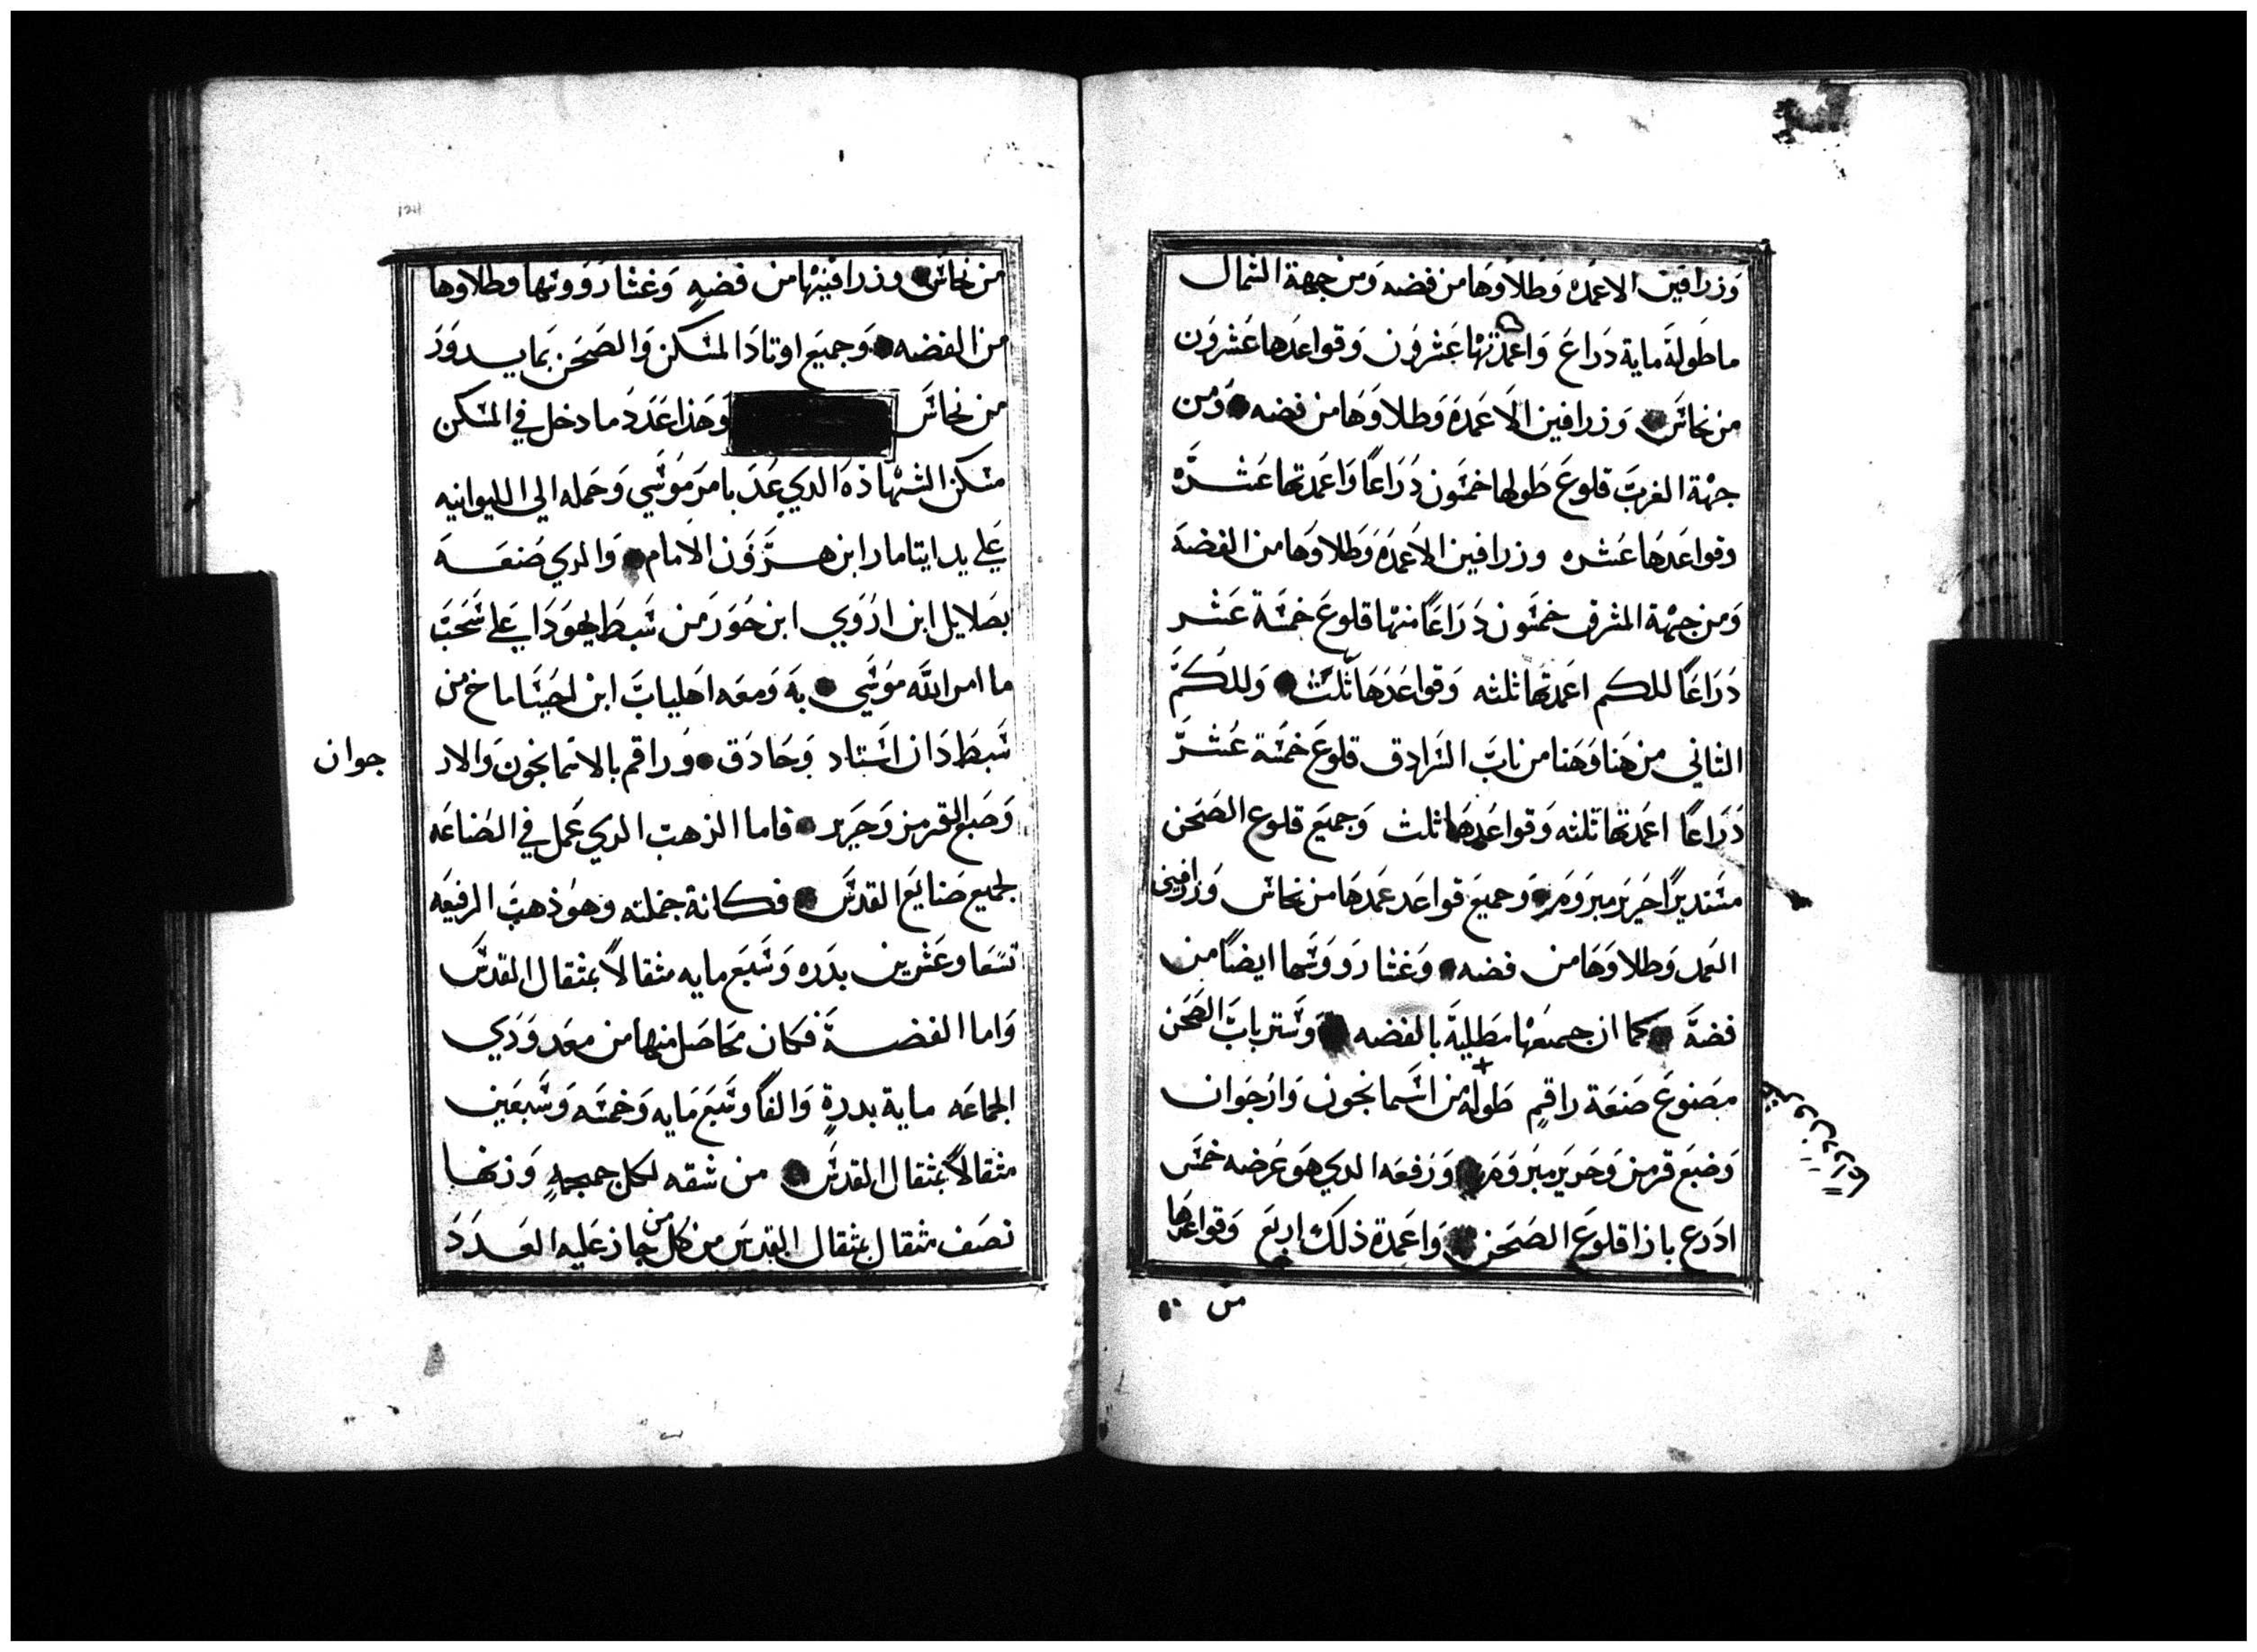 وزرافين الاعمده وطلاوها من فضه ومن جهة الشمال
ما طوله ماية دراع واعمدتها عشرون وقواعدها عشرون
من نحاس وزرافين الاعمده وطلاوها من فضه ومن
جهة الغرب قلوع طولها خمسون دراعًا واعمدتها عشره
وقواعدها عشره وزرافين الاعمده وطلاوها من الفضه
ومن جهة المشرق خمسون دراعًا منها قلوع خمسة عشر
دراعًا للكم اعمدتها ثلثه وقواعدها ثلث وللكم
الثاني من هنا وهنا من باب السرادق قلوع خمسة عشر
دراعًا اعمدتها ثلثه وقواعدها ثلث وجميع قلوع الصحن
مستديرًا حرير مبروم وجميع قواعد عمدها من نحاس وزرافين
العمد وطلاوها من فضه وغشا رووسها ايضًا من
فضة كما ان جميعها مطلية بالفضه وستر باب الصحن
مصنوع صنعة راقم طوله من اسمانجون وارجوان
وصبع قرمز وحرير مبروم ورفعه الدي هو عرضه خمس
ادرع بازا قلوع الصحن واعمدة ذلك اربع وقواعدها
من
من نحاس وزرافينها من فضه وغشا رووسها وطلاوها
من الفضه وجميع اوتاد المسكن والصحن بما يدور
من نحاس وهذا عدد ما دخل في المسكن
مسكن الشهاده الدي عد بامر موسي وحمله الي الليوانيه
علي يد ايتامار ابن هرون الامام والدي صنعه
بصلايل ابن اروي ابن حور من سبط يهودا علي سحب
ما امر الله موسي به ومعه اهلياب ابن احيساماخ من
سبط دان استاد وحادق وراقم بالاسمانجون والار
جوان
وصبع القرمز وحرير فاما الزهب الدي عمل في الصناعه
لجميع صنايع القدس فكانة جملته وهو ذهب الرفيعه
تسعا وعشرين بدره وسبع مايه مثقالاً بمثقال القدس
واما الفضة فكان محاصل منها من معدودي
الجماعه ماية بدرة والفًا وسبع مايه وخمسه وسبعين
مثقالاً بمثقال القدس من شقه لكل جمجمه وزنها
نصف مثقال بمثقال القدس من كل من جاز عليه العدد